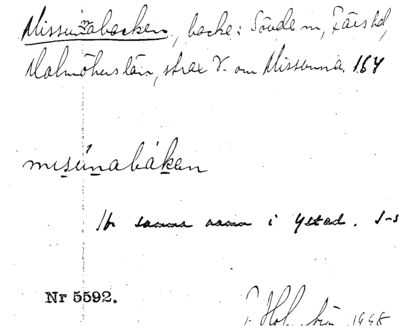 Missunnabacken, backe: Sövde sn, Färs hd,
Malmöhus län, strax V. om Missunna 164
misúnabákan
samma namn i Ystad. I-s
Nr 5592.
1948